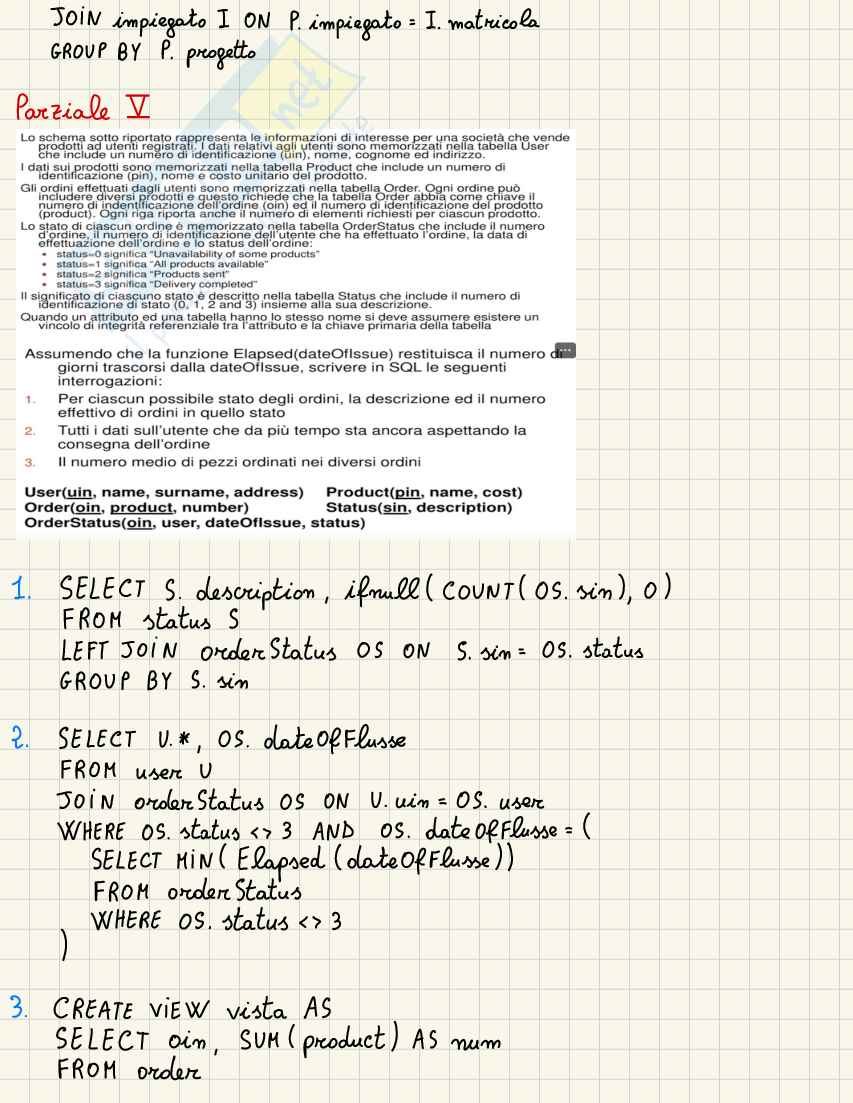 JOIN impiegato I ON P. impiegato = I. matricola
GROUP BY P. progetto
Parziale V
Lo schema sotto riportato rappresenta le informazioni di interesse per una società che vende
prodotti ad utenti registrati. I dati relativi agli utenti sono memorizzati nella tabella User
che include un numero di identificazione (uin), nome, cognome ed indirizzo.
I dati sui prodotti sono memorizzati nella tabella Product che include un numero di
identificazione (pin), nome e costo unitario del prodotto.
Gli ordini effettuati dagli utenti sono memorizzati nella tabella Order. Ogni ordine può
includere diversi prodotti e questo richiede che la tabella Order abbia come chiave il
numero di indentificazione dell'ordine (oin) ed il numero di identificazione del prodotto
(product). Ogni riga riporta anche il numero di elementi richiesti per ciascun prodotto.
Lo stato di ciascun ordine è memorizzato nella tabella OrderStatus che include il numero
d'ordine, il numero di identificazione dell'utente che ha effettuato l'ordine, la data di
effettuazione dell'ordine e lo status dell'ordine:
• status=0 significa "Unavailability of some products"
• status=1 significa "All products available"
• status=2 significa "Products sent"
• status=3 significa "Delivery completed"
Il significato di ciascuno stato è descritto nella tabella Status che include il numero di
identificazione di stato (0, 1, 2 and 3) insieme alla sua descrizione.
Quando un attributo ed una tabella hanno lo stesso nome si deve assumere esistere un
vincolo di integrità referenziale tra l'attributo e la chiave primaria della tabella
Assumendo che la funzione Elapsed(dateOfIssue) restituisca il numero di
giorni trascorsi dalla dateOfIssue, scrivere in SQL le seguenti
interrogazioni:
1. Per ciascun possibile stato degli ordini, la descrizione ed il numero
effettivo di ordini in quello stato
2. Tutti i dati sull'utente che da più tempo sta ancora aspettando la
consegna dell'ordine
3. Il numero medio di pezzi ordinati nei diversi ordini
User(uin, name, surname, address) Product(pin, name, cost)
Order(oin, product, number) Status(sin, description)
OrderStatus(oin, user, dateOfIssue, status)
1. SELECT S. description, ifnull(COUNT(OS. sin), 0)
FROM status S
LEFT JOIN orderStatus OS ON S. sin = OS. status
GROUP BY S. sin
2. SELECT U.*, OS. dateOfFlusse
FROM user U
JOIN orderStatus OS ON U. uin = OS. user
WHERE OS. status <> 3 AND OS. dateOfFlusse = (
SELECT MIN( Elapsed (dateOfFlusse))
FROM orderStatus
WHERE OS. status <> 3
)
3. CREATE VIEW vista AS
SELECT oin, SUM(product) AS num
FROM order